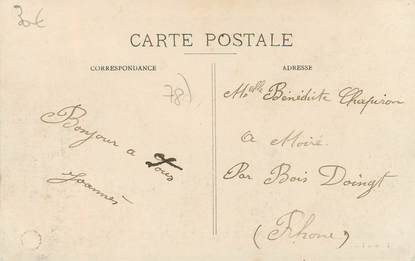 30€
CARTE POSTALE
CORRESPONDANCE
ADRESSE
78)
Melle Bénédicte Chapiron
a Moiré.
Par Bois Doingt
(Rhone)
Bonjour a Tous
Joannès